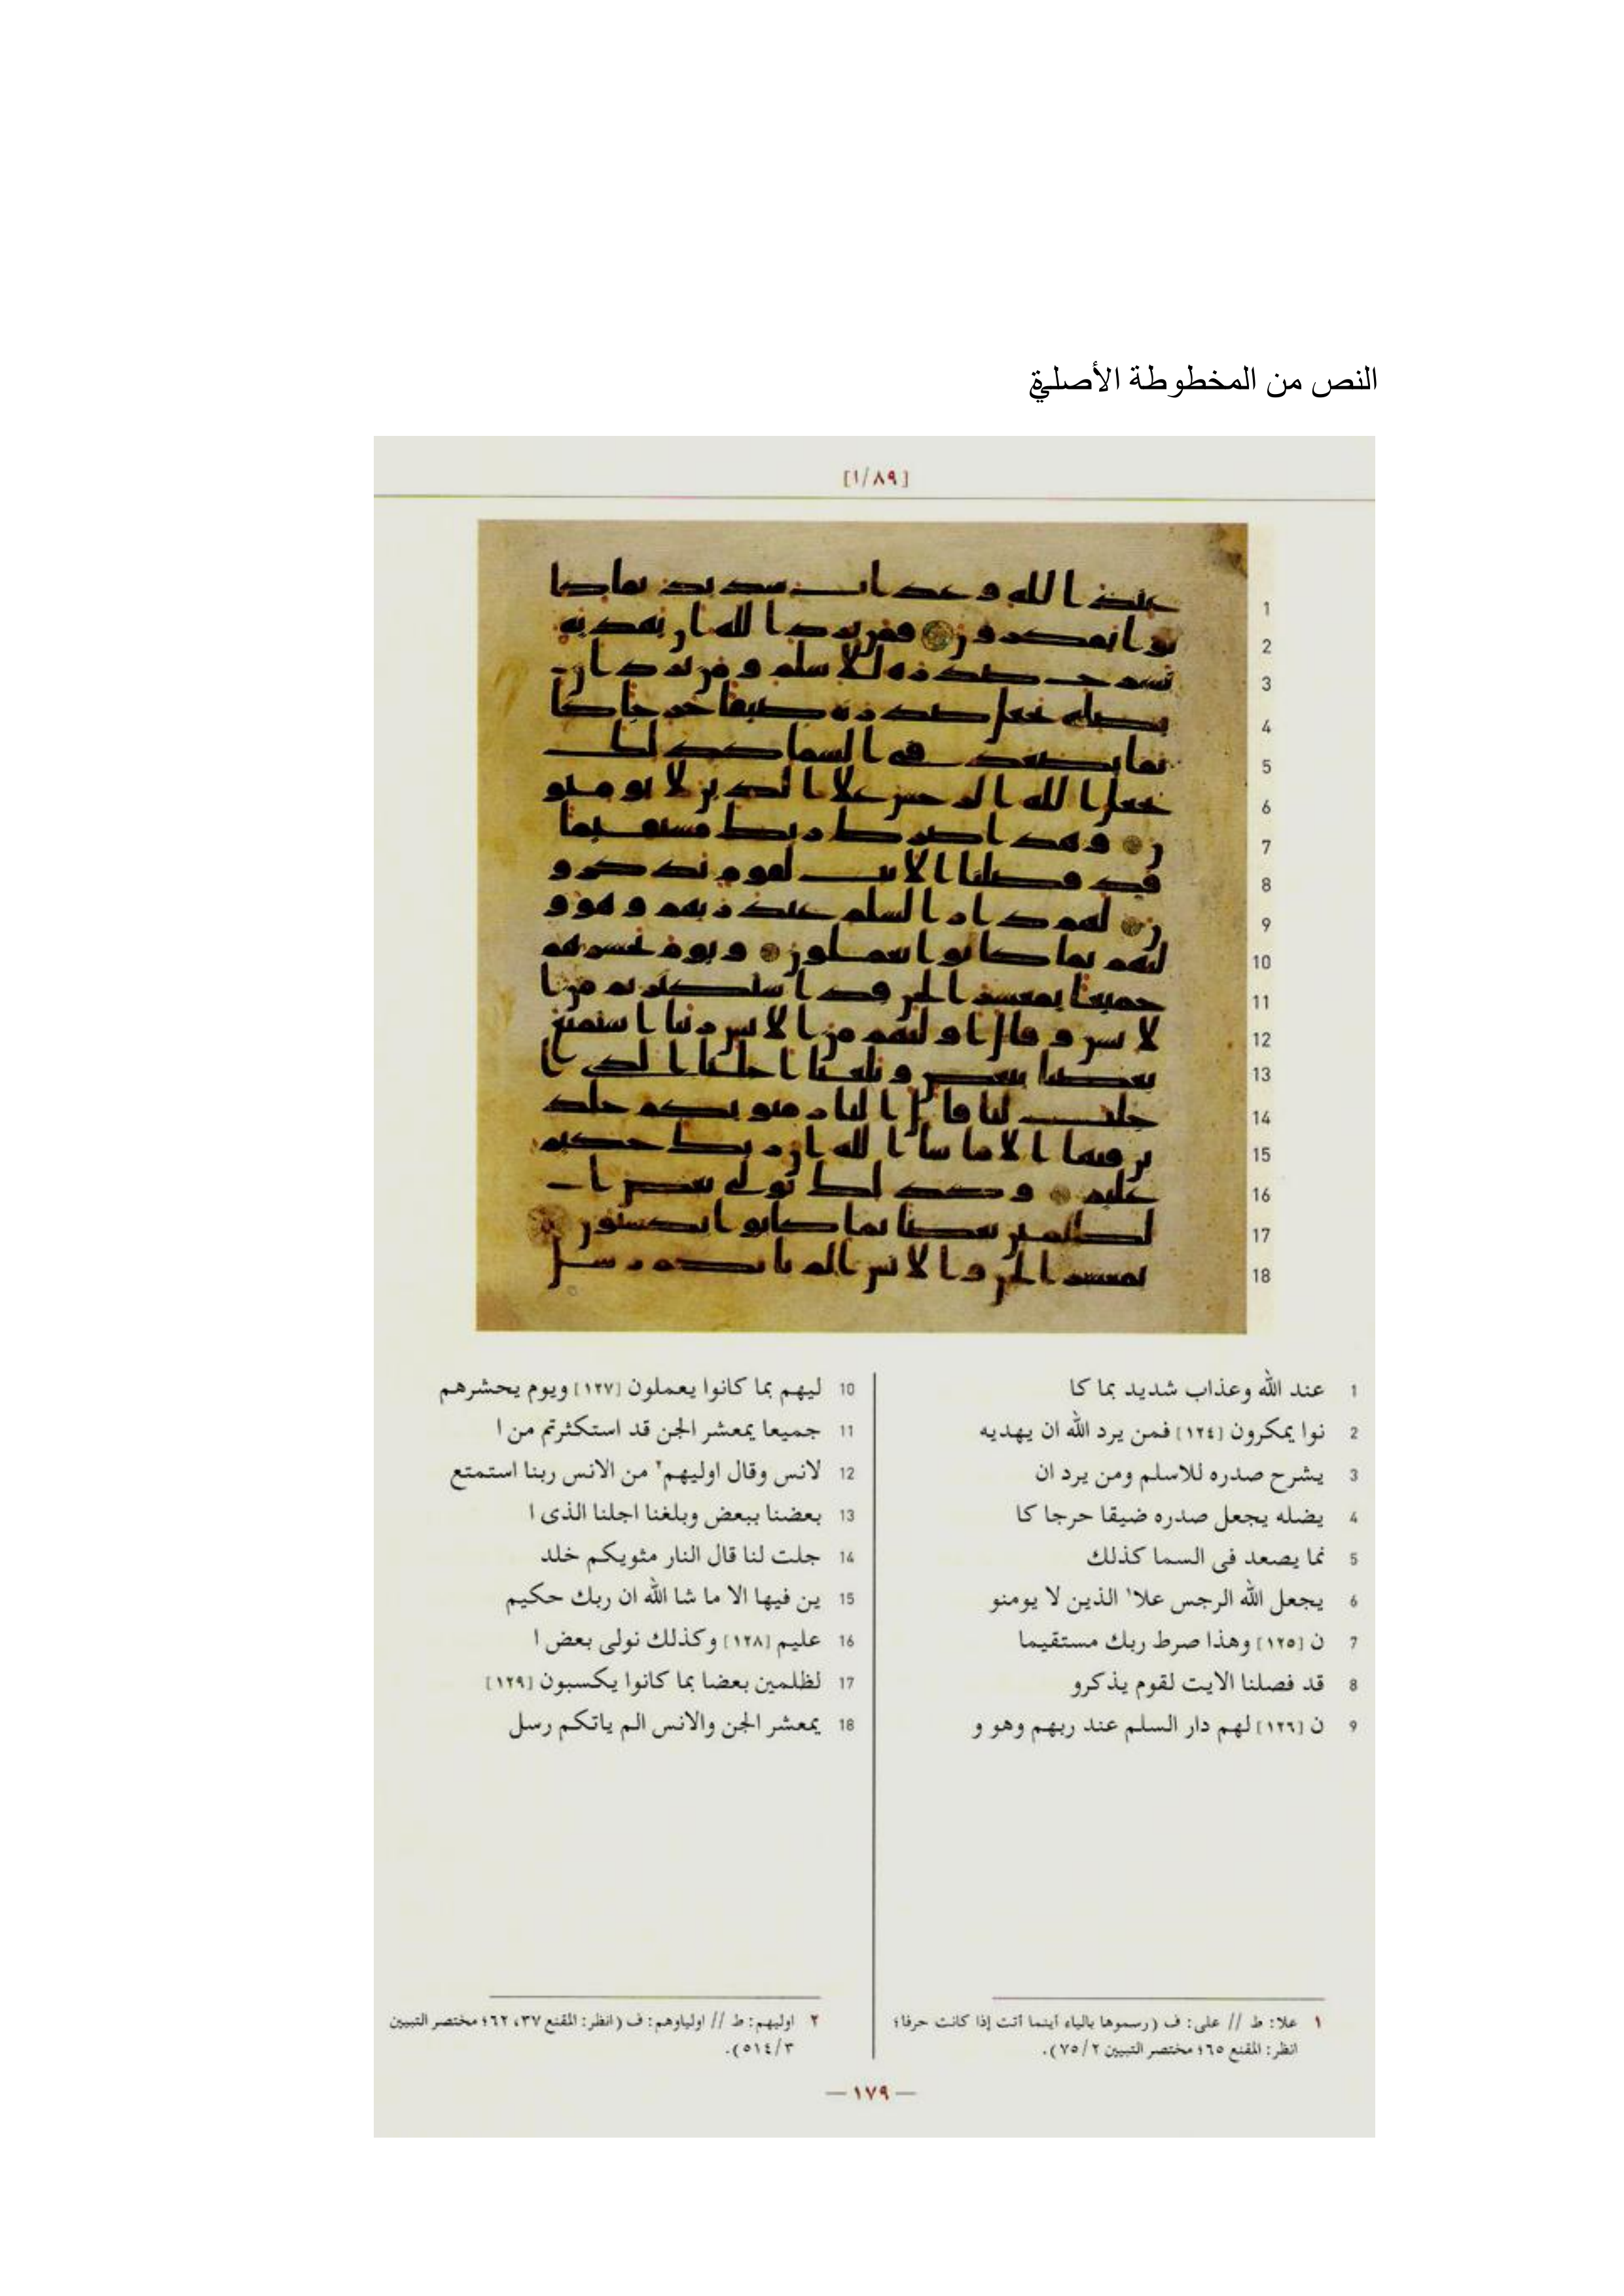 النص من المخطوطة الأصلية
[١/٨٩]
1
2
3
4
5
6
7
8
9
10
11
12
13
14
15
16
17
18
1 عند الله وعذاب شديد بما كا
2 نوا يمكرون [١٢٤] فمن يرد الله ان يهديه
3 يشرح صدره للاسلم ومن يرد ان
4 يضله يجعل صدره ضيقا حرجا كا
5 نما يصعد فى السما كذلك
6 يجعل الله الرجس علا١ الذين لا يومنو
7 ن [١٢٥] وهذا صرط ربك مستقيما
8 قد فصلنا الايت لقوم يذكرو
9 ن [١٢٦] لهم دار السلم عند ربهم وهو و
10 ليهم بما كانوا يعملون [١٢٧] ويوم يحشرهم
11 جميعا يمعشر الجن قد استكثرتم من ا
12 لانس وقال اوليهم٢ من الانس ربنا استمتع
13 بعضنا ببعض وبلغنا اجلنا الذى ا
14 جلت لنا قال النار مثويكم خلد
15 ين فيها الا ما شا الله ان ربك حكيم
16 عليم [١٢٨] وكذلك نولى بعض ا
17 لظلمين بعضا بما كانوا يكسبون [١٢٩]
18 يمعشر الجن والانس الم ياتكم رسل
١ علا: ط // على: ف (رسموها بالياء أينما أتت إذا كانت حرفا؛
انظر: المقنع ٦٥؛ مختصر التبيين ٧٥/٢).
٢ اوليهم: ط // اولياوهم: ف (انظر: المقنع ٣٧، ٦٢؛ مختصر التبيين
٥١٤/٣).
— ١٧٩ —